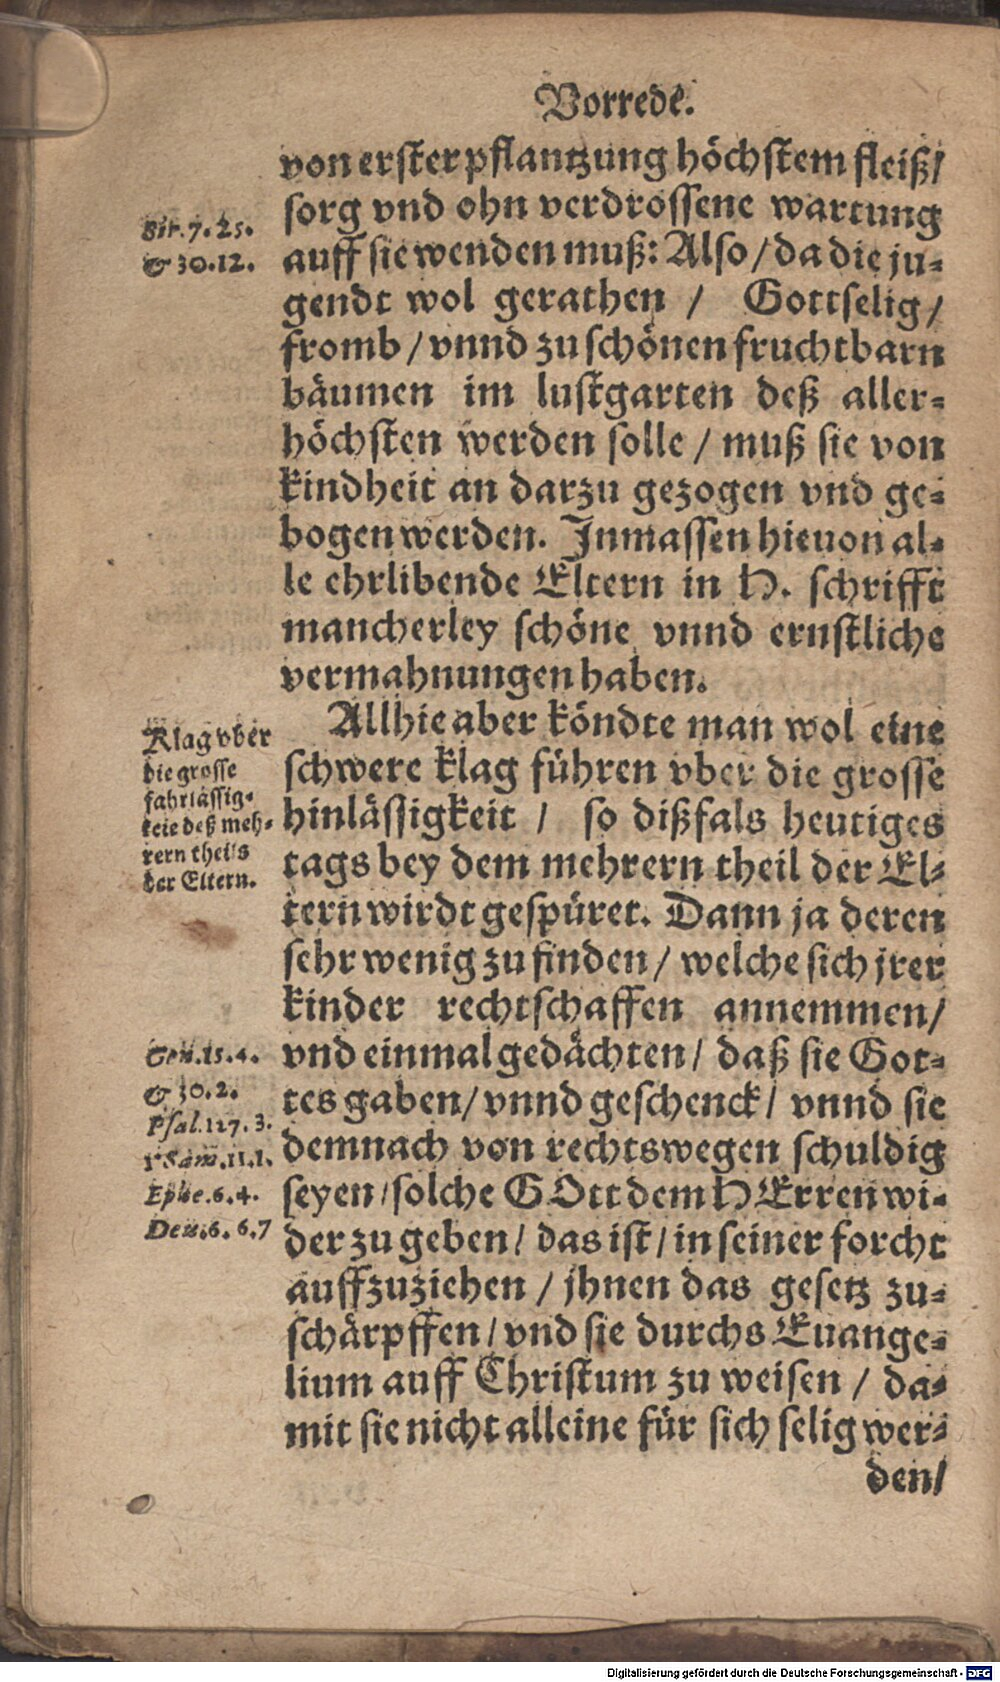 Vorrede.
von erster pflantzung höchstem fleiß/
sorg vnd ohn verdrossene wartung
auff sie wenden muß: Also / da die ju-
gendt wol gerathen / Gottselig /
fromb / vnnd zu schönen fruchtbarn
bäumen im lustgarten deß aller-
höchsten werden solle / muß sie von
kindheit an darzu gezogen vnd ge-
bogen werden. Inmassen hieuon al-
le ehrlibende Eltern in H. schrifft
mancherley schöne vnnd ernstliche
vermahnungen haben.
Allhie aber köndte man wol eine
schwere klag führen vber die grosse
hinlässigkeit / so dißfals heutiges
tags bey dem mehrern theil der El-
tern wirdt gespüret. Dann ja deren
sehr wenig zu finden / welche sich jrer
kinder rechtschaffen annemmen /
vnd einmal gedächten / daß sie Got-
tes gaben / vnnd geschenck / vnnd sie
demnach von rechtswegen schuldig
seyen / solche GOtt dem HErren wi-
der zu geben / das ist / in seiner forcht
auffzuziehen / jhnen das gesetz zu-
schärpffen / vnd sie durchs Euange-
lium auff Christum zu weisen / da-
mit sie nicht alleine für sich selig wer-
den /
Sir. 7. 25.
& 30. 12.
Klag vber
die grosse
fahrlässig-
keit deß meh-
rern theils
der Eltern.
Gen. 15. 4.
& 30. 2.
Psal. 127. 3.
1 Sam. 11. 1.
Ephe. 6. 4.
Deu. 6. 6. 7
Digitalisierung gefördert durch die Deutsche Forschungsgemeinschaft - DFG